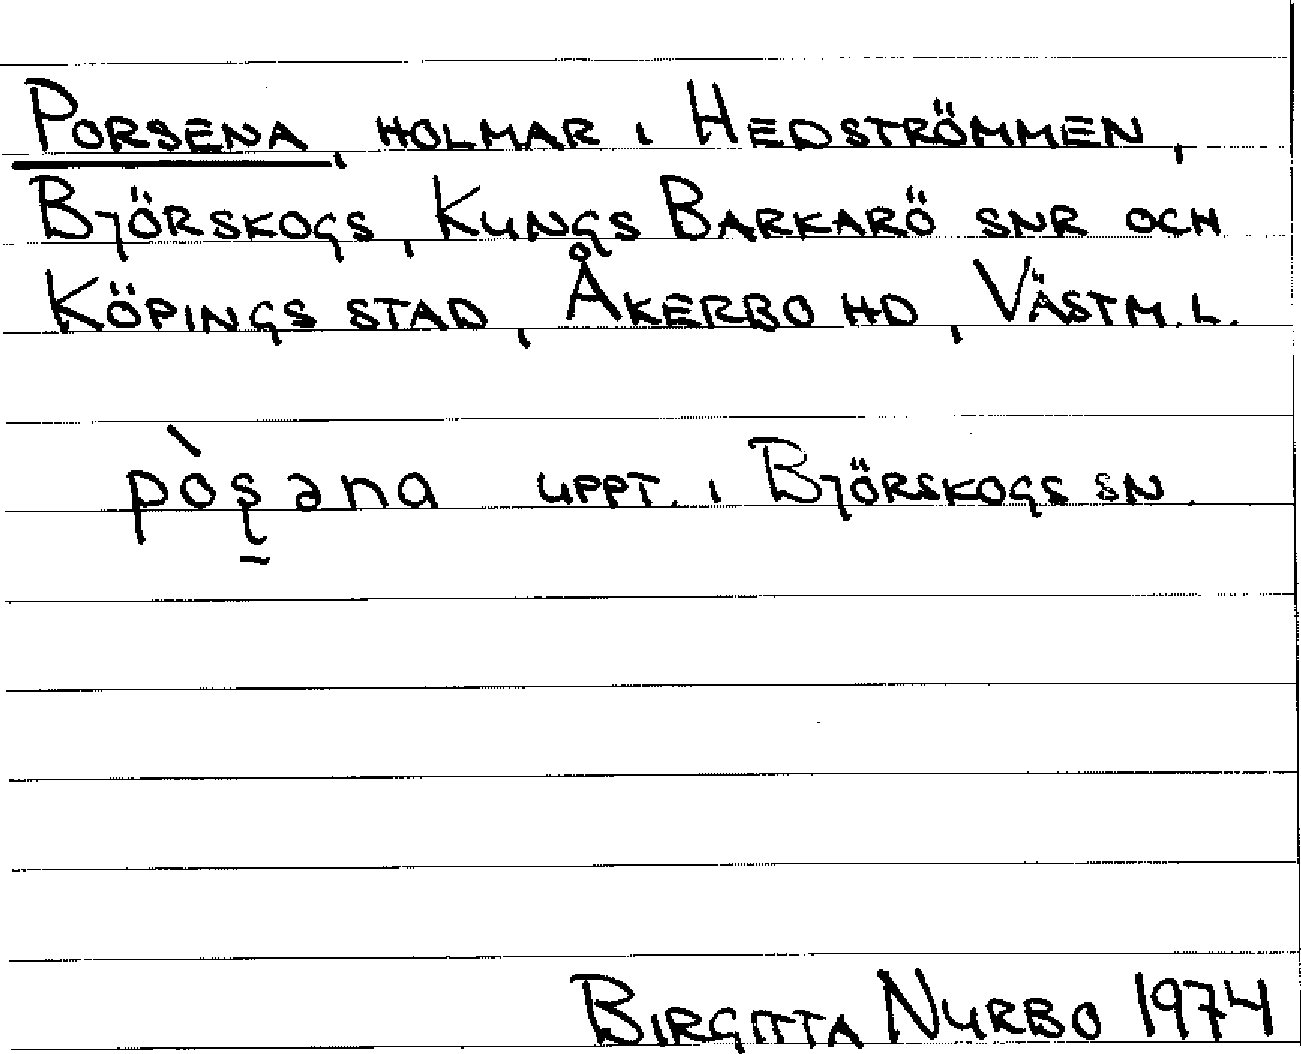 PORSENA, HOLMAR I HEDSTRÖMMEN,
BJÖRSKOGS, KUNGS BARKARÖ SNR OCH
KÖPINGS STAD, ÅKERBO HD, VÄSTM.L.
pòʂ̠əna UPPT. I BJÖRSKOGS SN.
BIRGITTA NURBO 1974